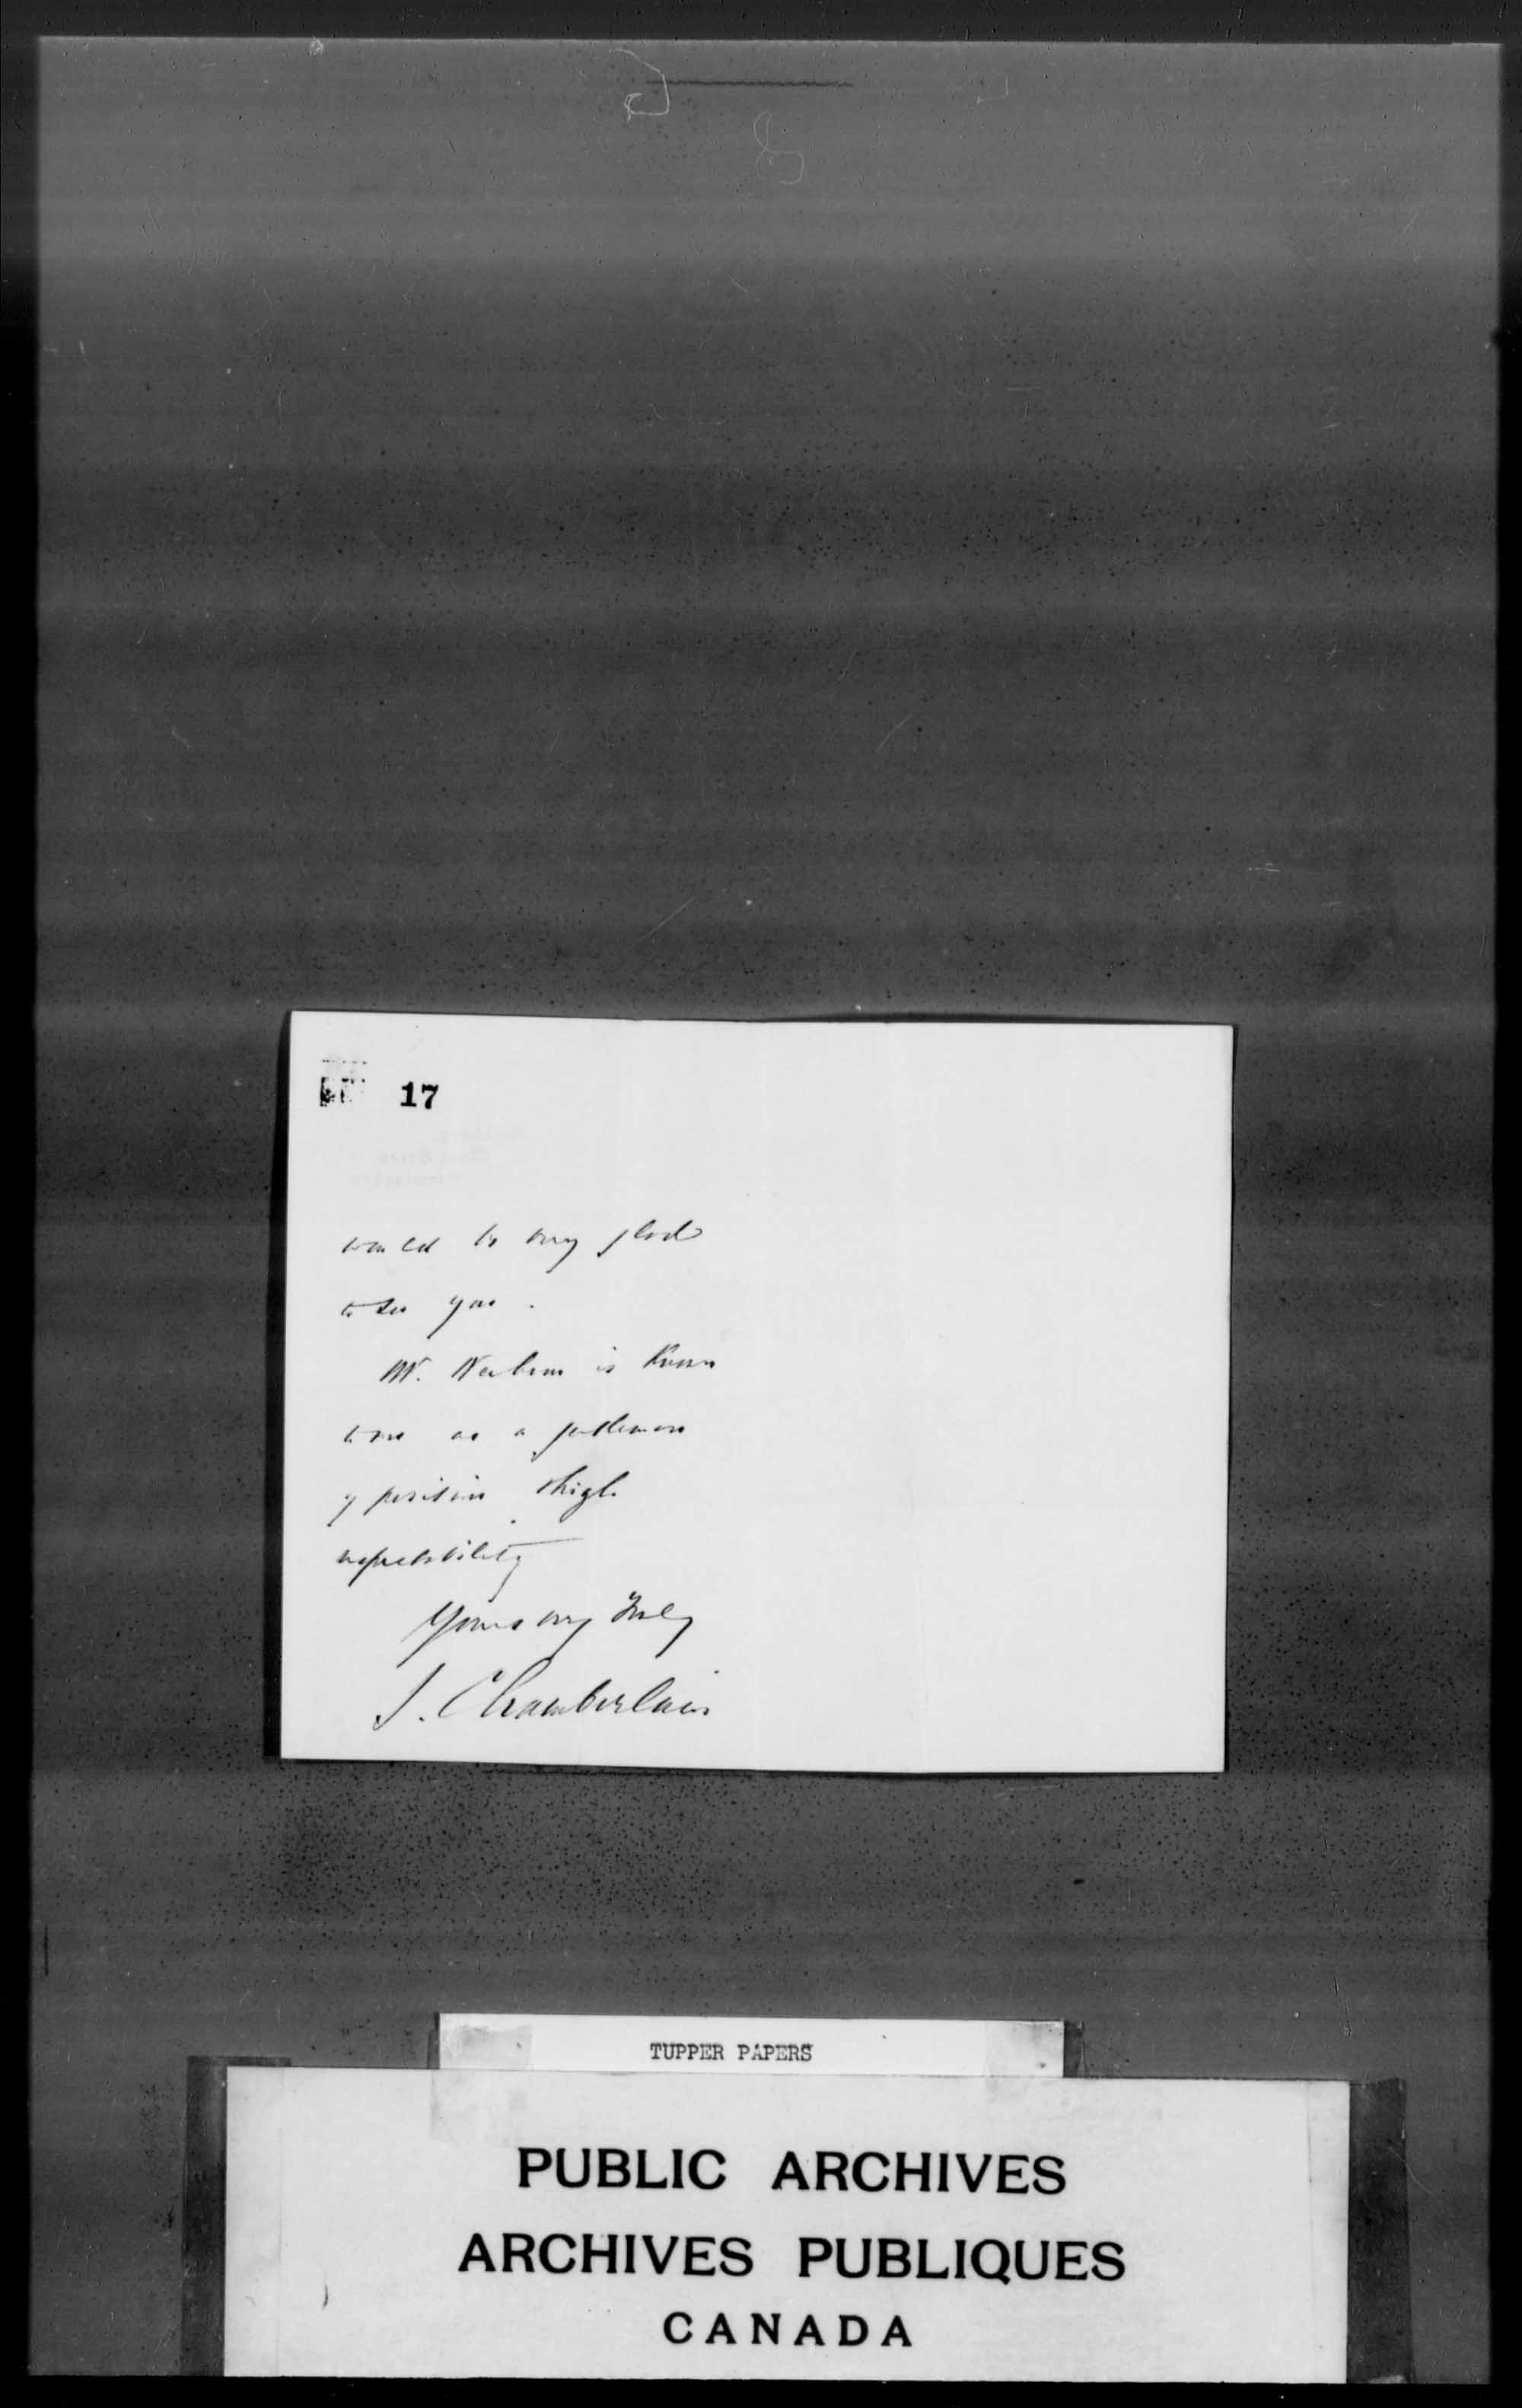 17
would be very glad
to see you.
Mr. is known
to me as a gentleman
of position & high
respectability
Yours very truly
J. Chamberlain
TUPPER PAPERS
PUBLIC ARCHIVES
ARCHIVES PUBLIQUES
CANADA